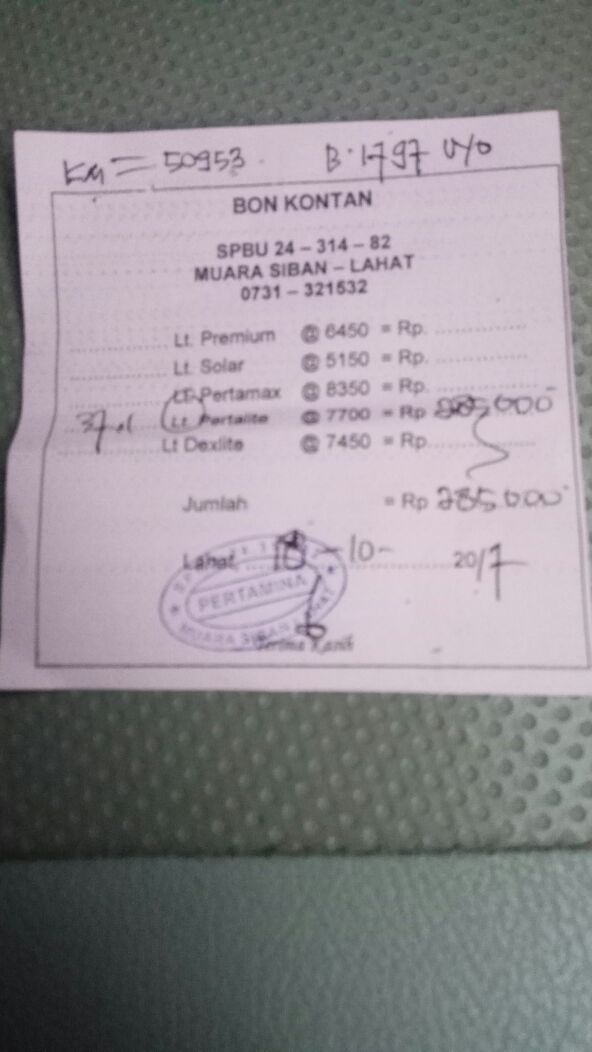 KM = 50953. B.1797 UYO
BON KONTAN
SPBU 24 – 314 – 82
MUARA SIBAN – LAHAT
0731 – 321532
Lt. Premium @ 6450 = Rp.
Lt. Solar @ 5150 = Rp.
Lt. Pertamax @ 8350 = Rp.
Lt. Pertalite @ 7700 = Rp 285.000
Lt Dexlite @ 7450 = Rp.
Jumlah = Rp 285.000
Lahat, 18 – 10 – 2017
PERTAMINA
MUARA SIBAN LAHAT
Terima Kasih